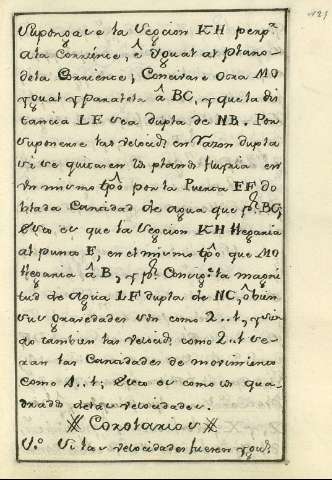 Supongase la Seccion KH perp.ᵉ
ala Corriente, ê ygual al plano
dela Corriente; Concivase otra MO
ygual y Paralela â BC, y que la dis
tancia LF sea dupla de NB. Por
suponerse las velocid.ˢ en razon dupla
si se quitasen los planos fluiria en
un mismo tpô por la Puerta EF do
blada Cantidad de Agua que p.ʳ BC,
Esto es que la Seccion KH llegaria
al punto E, en el mismo tpô que MO
llegaria â B, y p.ʳ Consig.ᵗᵉ la magni
tud de Agua LF dupla de NC, ô bien
sus gravedades son como 2..1, y sien
do tambien las velocid.ˢ como 2..1 se-
ran las Cantidades de movimiento
como 4..1; Esto es como los qua-
drados delas velocidades.
Corolarios
S.º Si las velocidades fuesen ygu.ˢ